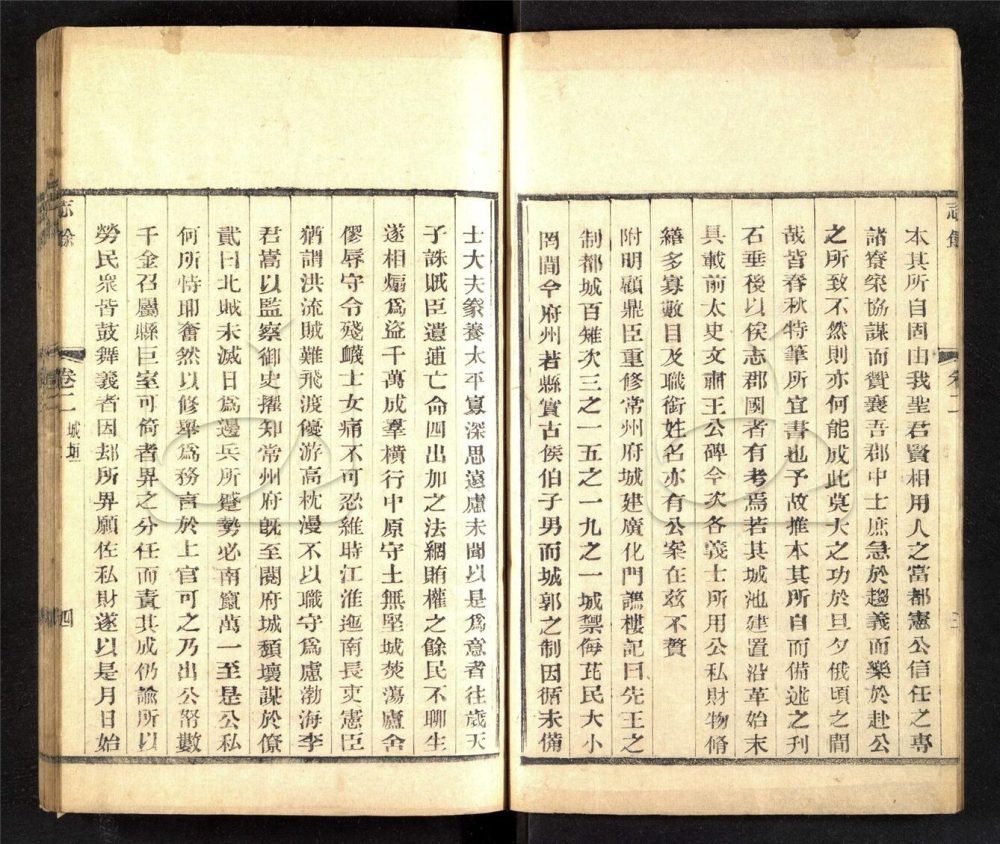 本其所自固由我聖君賢相用人之當都憲公信任之專
諸寮寀協謀而贊襄吾郡中士庶急於趨義而樂於赴公
之所致不然則亦何能成此莫大之功於旦夕俄頃之間
哉皆春秋特筆所宜書也予故推本其所自而備述之刊
石垂後以俟志郡國者有考焉若其城池建置沿革始末
具載前太史文肅王公碑今次各義士所用公私財物脩
繕多寡數目及職銜姓名亦有公案在茲不贅
附明顧鼎臣重修常州府城建廣化門譙樓記曰先王之
制都城百雉次三之一五之一九之一城禦侮芘民大小
罔間今府州若縣實古侯伯子男而城郭之制因循未備
志餘
卷二
三
士大夫豢養太平寡深思遠慮未聞以是為意者往歲天
子誅賊臣遺逋亡命四出加之法網賄權之餘民不聊生
遂相煽為盜千萬成羣橫行中原守土無堅城焚蕩廬舍
僇辱守令殘衊士女痛不可忍維時江淮迤南長吏憲臣
猶謂洪流賊難飛渡優游高枕漫不以職守為慮渤海李
君嵩以監察御史擢知常州府旣至閱府城頹壞謀於僚
貳曰北賊未滅日為邊兵所蹙勢必南竄萬一至是公私
何所恃耶奮然以修舉為務言於上官可之乃出公帑數
千金召屬縣巨室可倚者畀之分任而責其成仍諭所以
勞民衆皆鼓舞義者因却所畀願佐私財遂以是月日始
志餘
卷二
城垣
四